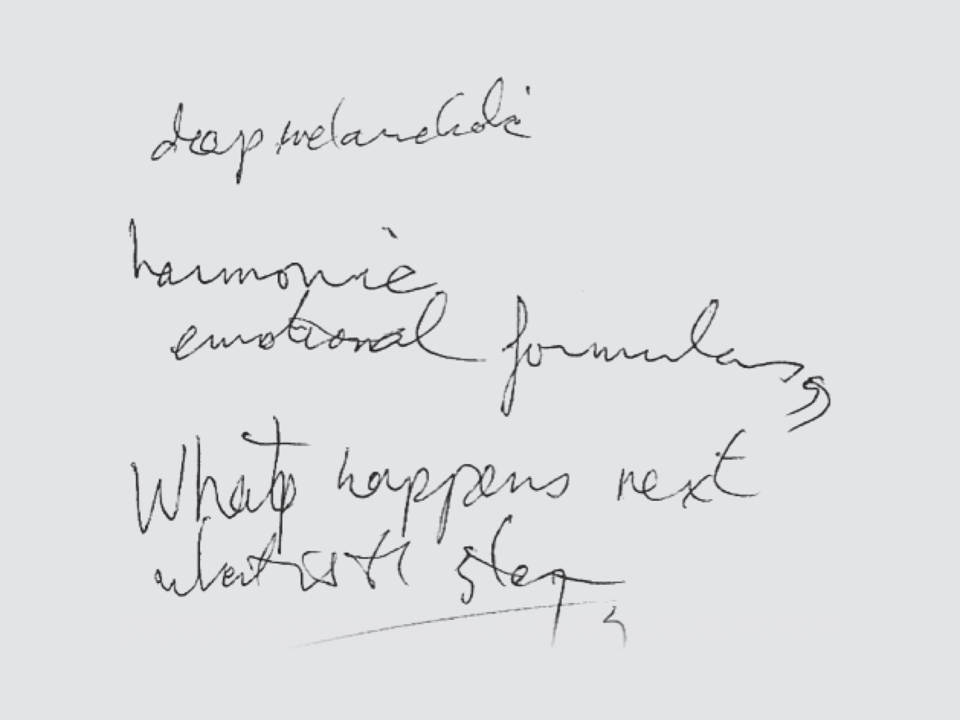 deep melancholic
harmonic
emotional formulas,
What happens next
what is th step